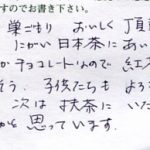 すのでお書き下さい。
巣ごもり おいしく 頂戴
にがい 日本茶に あい
がチョコレートなので 紅
そう。子供たちも よう
次は 抹茶に いた
かと 思っています.